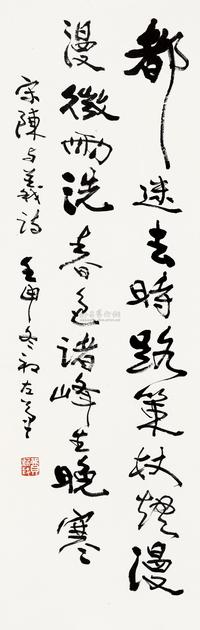 都迷去時路策杖煙漫
漫微雨洗春色諸峰生晚寒
宋陳与義詩 壬申冬初